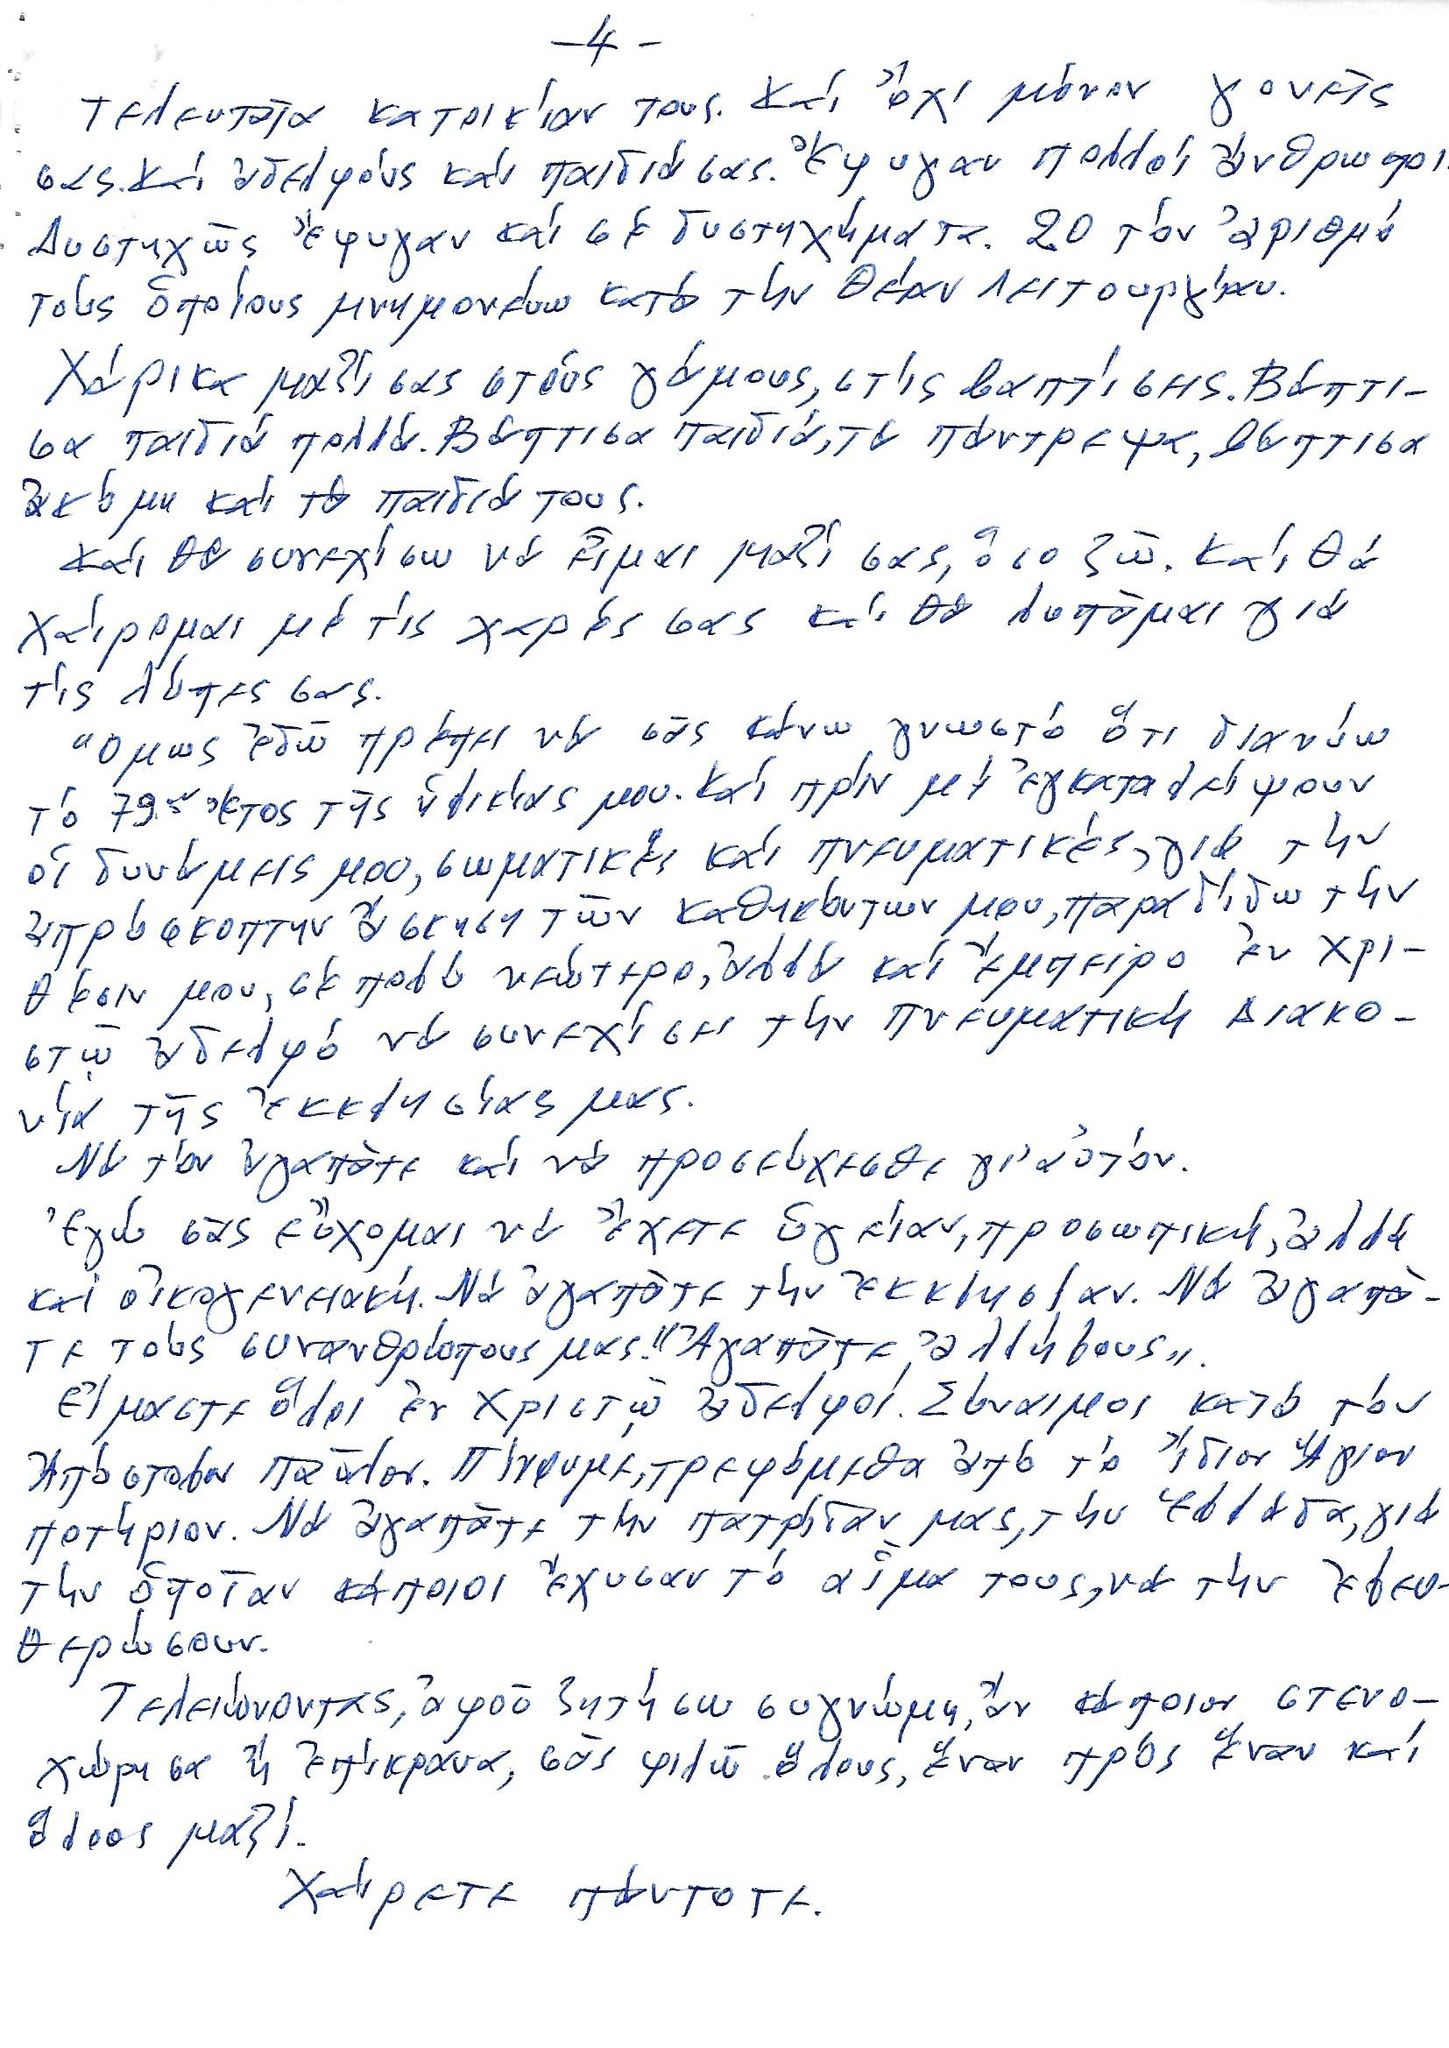 -4-
τελευταῖα κατοικίαν τους. Καί ὄχι μόνον γονεῖς
σας. Καί ἀδελφούς καί παιδιά σας. Ἔφυγαν πολλοί ἄνθρωποι.
Δυστυχῶς ἔφυγαν καί σέ δυστηχήματα. 20 τόν ἀριθμό
τούς ὁποίους μνημονεύω κατά τήν Θείαν Λειτουργίαν.
Χάρικα μαζί σας στούς γάμους, στίς βαπτίσεις. Βάπτι-
σα παιδιά πολλά. Βάπτισα παιδιά, τά πάντρεψα, βάπτισα
ἀκόμη καί τά παιδιά τους.
Καί θά συνεχίσω νά εἶμαι μαζί σας, ὅσο ζῶ. Καί θά
χαίρομαι μέ τίς χαρές σας καί θά λυπᾶμαι γιά
τίς λύπες σας.
Ὅμως ἐδῶ πρέπει νά σᾶς κάνω γνωστό ὅτι διανύω
τό 79ον ἔτος τῆς ἡλικίας μου. Καί πρίν μέ ἐγκαταλείψουν
οἱ δυνάμεις μου, σωματικές καί πνευματικές, γιά τήν
ἀπρόσκοπτην ἄσκηση τῶν καθηκόντων μου, παραδίδω τήν
θέσιν μου, σέ πολύ νεώτερο, ἀλλά καί ἔμπειρο ἐν Χρι-
στῷ ἀδελφό νά συνεχίσει τήν πνευματική Διακο-
νία τῆς Ἐκκλησίας μας.
Νά τόν ἀγαπᾶτε καί νά προσεύχεσθε γι' αὐτόν.
Ἐγώ σᾶς εὔχομαι νά ἔχετε ὑγείαν, προσωπική, ἀλλά
καί οἰκογενειακή. Νά ἀγαπᾶτε τήν Ἐκκλησίαν. Νά ἀγαπᾶ-
τε τούς συνανθρώπους μας. "Ἀγαπᾶτε ἀλλήλους".
Εἴμαστε ὅλοι ἐν Χριστῷ ἀδελφοί. Σύναιμοι κατά τόν
Ἀπόστολον Παῦλον. Πίνουμε, τρεφόμεθα ἀπό τό ἴδιον Ἅγιον
ποτήριον. Νά ἀγαπᾶτε τήν πατρίδαν μας, τήν Ἑλλάδα, γιά
τήν ὁποῖαν κάποιοι ἔχυσαν τό αἷμα τους, νά τήν ἐλευ-
θερώσουν.
Τελειώνοντας, ἀφοῦ ζητήσω συγνώμη, ἄν κάποιον στενο-
χώρησα ἤ ἐπίκρανα, σᾶς φιλῶ ὅλους, ἕναν πρός ἕναν καί
ὅλους μαζί.
Χαίρετε πάντοτε.